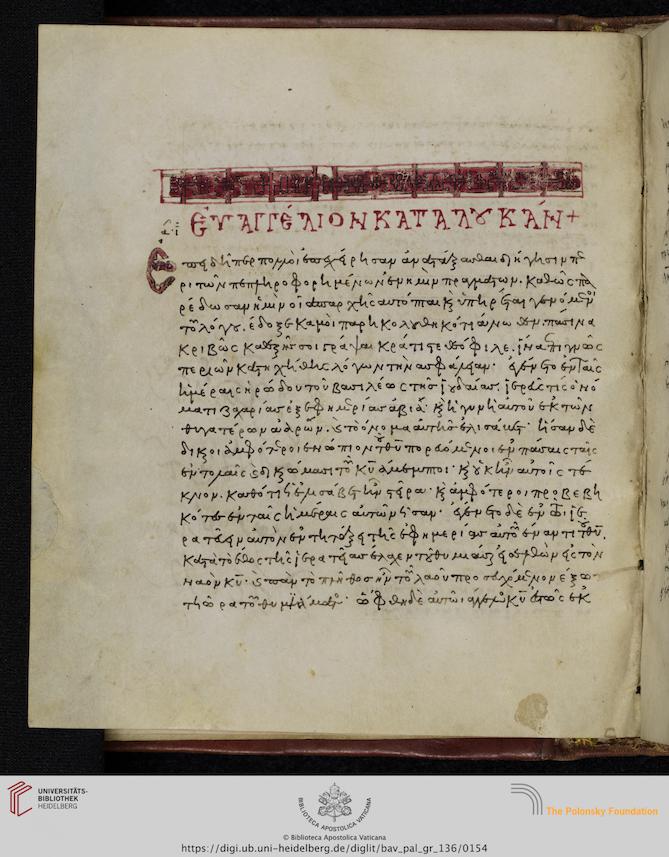 ΕΥΑΓΓΕΛΙΟΝ ΚΑΤΑ ΛΟΥΚΑΝ +
Ἐπειδήπερ πολλοὶ ἐπεχείρησαν ἀνατάξασθαι διήγησιν πε
ρὶ τῶν πεπληροφορημένων ἐν ἡμῖν πραγμάτων. καθὼς πα
ρέδωσαν ἡμῖν οἱ ἀπαρχῆς αὐτόπται κ̀ ὑπηρέται γενόμενοι
τοῦ λόγου. ἔδοξε καμοὶ παρηκολουθηκότι ἄνωθεν. πᾶσιν ἀ
κριβῶς καθεξῆς σοι γράψαι κράτιστε θεόφιλε. ἵνα ἐπιγνῶς
περὶ ὧν κατηχήθης λόγων τὴν ἀσφάλειαν. ἐγένετο ἐν ταῖς
ἡμέραις ἡρώδου τοῦ βασιλέως τῆς ἰουδαίας. ἱερεύς τις ὀνό
ματι ζαχαρίας ἐξ ἐφημερίας ἀβιά. κ̀ ἡ γυνὴ αὐτοῦ ἐκ τῶν
θυγατέρων ἀαρών. κ̀ τὸ ὄνομα αὐτῆς ἐλισάβετ. ἦσαν δὲ
δίκαιοι ἀμφότεροι ἐνώπιον τοῦ θῦ πορευόμενοι ἐν πάσαις ταῖς
ἐντολαῖς κ̀ δικαιώμασι τοῦ κῦ ἄμεμπτοι. κ̀ οὐκ ἦν αὐτοῖς τέ
κνον. καθότι ἡ ἐλισάβετ ἦν στεῖρα. κ̀ ἀμφότεροι προβεβη
κότες ἐν ταῖς ἡμέραις αὐτῶν ἦσαν. ἐγένετο δὲ ἐν τῶ ἱε
ρατεύειν αὐτὸν ἐν τῆ τάξει τῆς ἐφημερίας αὐτοῦ ἔναντι τοῦ θῦ.
κατὰ τὸ ἔθος τῆς ἱερατείας ἔλαχεν τοῦ θυμιάσαι εἰσελθὼν εἰς τὸν
ναὸν κῦ. κ̀ πᾶν τὸ πλῆθος ἦν τοῦ λαοῦ προσευχόμενον ἔξω
τῆ ὥρα τοῦ θυμιάματος. ὤφθη δὲ αὐτῶ ἄγγελος κῦ ἑστὼς ἐκ
UNIVERSITÄTS-
BIBLIOTHEK
HEIDELBERG
BIBLIOTECA APOSTOLICA VATICANA
The Polonsky Foundation
© Biblioteca Apostolica Vaticana
https://digi.ub.uni-heidelberg.de/diglit/bav_pal_gr_136/0154